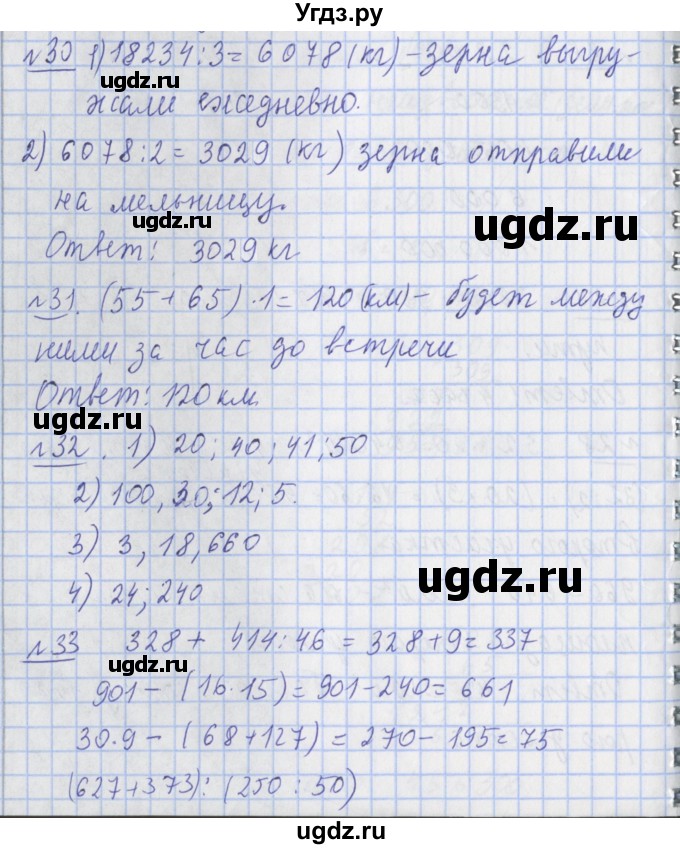 Угдз.ру
№30 1) 18234:3=6078 (кг) - зерна выгру-
жали ежедневно.
2) 6078:2=3029 (кг) зерна отправили
на мельницу.
ugdz.ru
ugdz.ru
Ответ: 3029 кг
№31. (55+65)·1=120 (км) - будет между
ними за час до встречи
Ответ: 120 км
ugdz.ru
№32. 1) 20; 40; 41; 50
2) 100, 30; 12; 5.
3) 3, 18, 660
4) 24; 240
ugdz.ru
№33 328 + 414:46 = 328+9=337
ugdz.ru
901 - (16·15) = 901-240= 661
30·9 - (68+127) = 270-195=75
(627+373): (250:50)
ugdz.ru